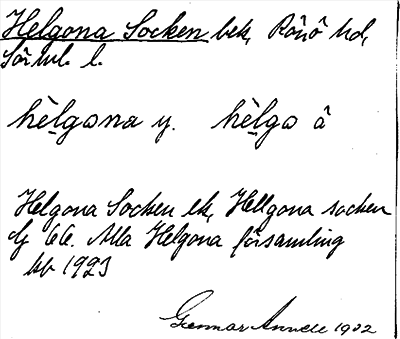 Helgona Socken bek, Rönö hd,
Sörml. l.
hèlgona y. hèlgo å
Helgona Socken ek, Hellgona socken
Alla Helgona församling
1923
Gunnar 1932